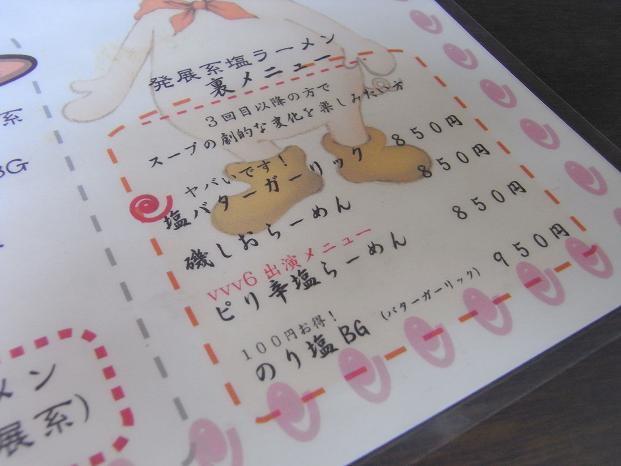 発展系塩ラーメン
裏メニュー
3回目以降の方で
スープの劇的な変化を楽しみたい方
ヤバいです！
塩バターガーリック 850円
磯しおらーめん 850円
vvv6出演メニュー
ピリ辛塩らーめん 850円
100円お得！
のり塩BG (バターガーリック) 950円
系
BG
メン
展系)